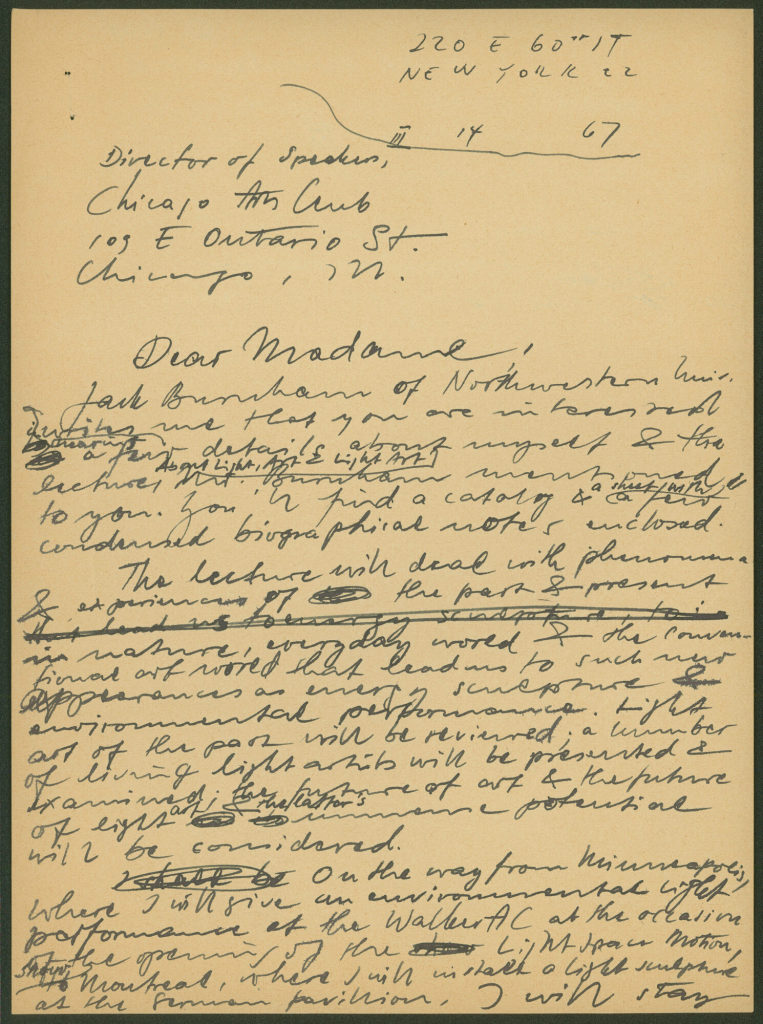 220 E 60TH ST
NEW YORK 22
III 14 67
Director of Speakers,
Chicago Arts Club
109 E Ontario St.
Chicago, Ill.
Dear Madame,
Jack Burnham of Northwestern Univ.
writes me that you are interested
to hearing a few details about myself & the
About Light, Art & Light Art
lecture, Mr. Burnham mentioned
to you. You'll find a catalog & a sheet with
condensed biographical notes enclosed.
The lecture will deal with phenomena
& experiences of the past & present
in nature, everyday world & the conven-
tional art world that lead us to such new
appearances as energy sculpture &
environmental performance. Light
art of the past will be reviewed; a number
of living light artists will be presented &
examined; the future of art & the future
of light art & the latter's immense potential
will be considered.
On the way from Minneapolis,
where I will give an environmental light
performance at the Walker AC at the occasion
of the opening of the Light Space Motion,
show, to Montreal, where I will install a light sculpture
at the German pavillion, I will stay